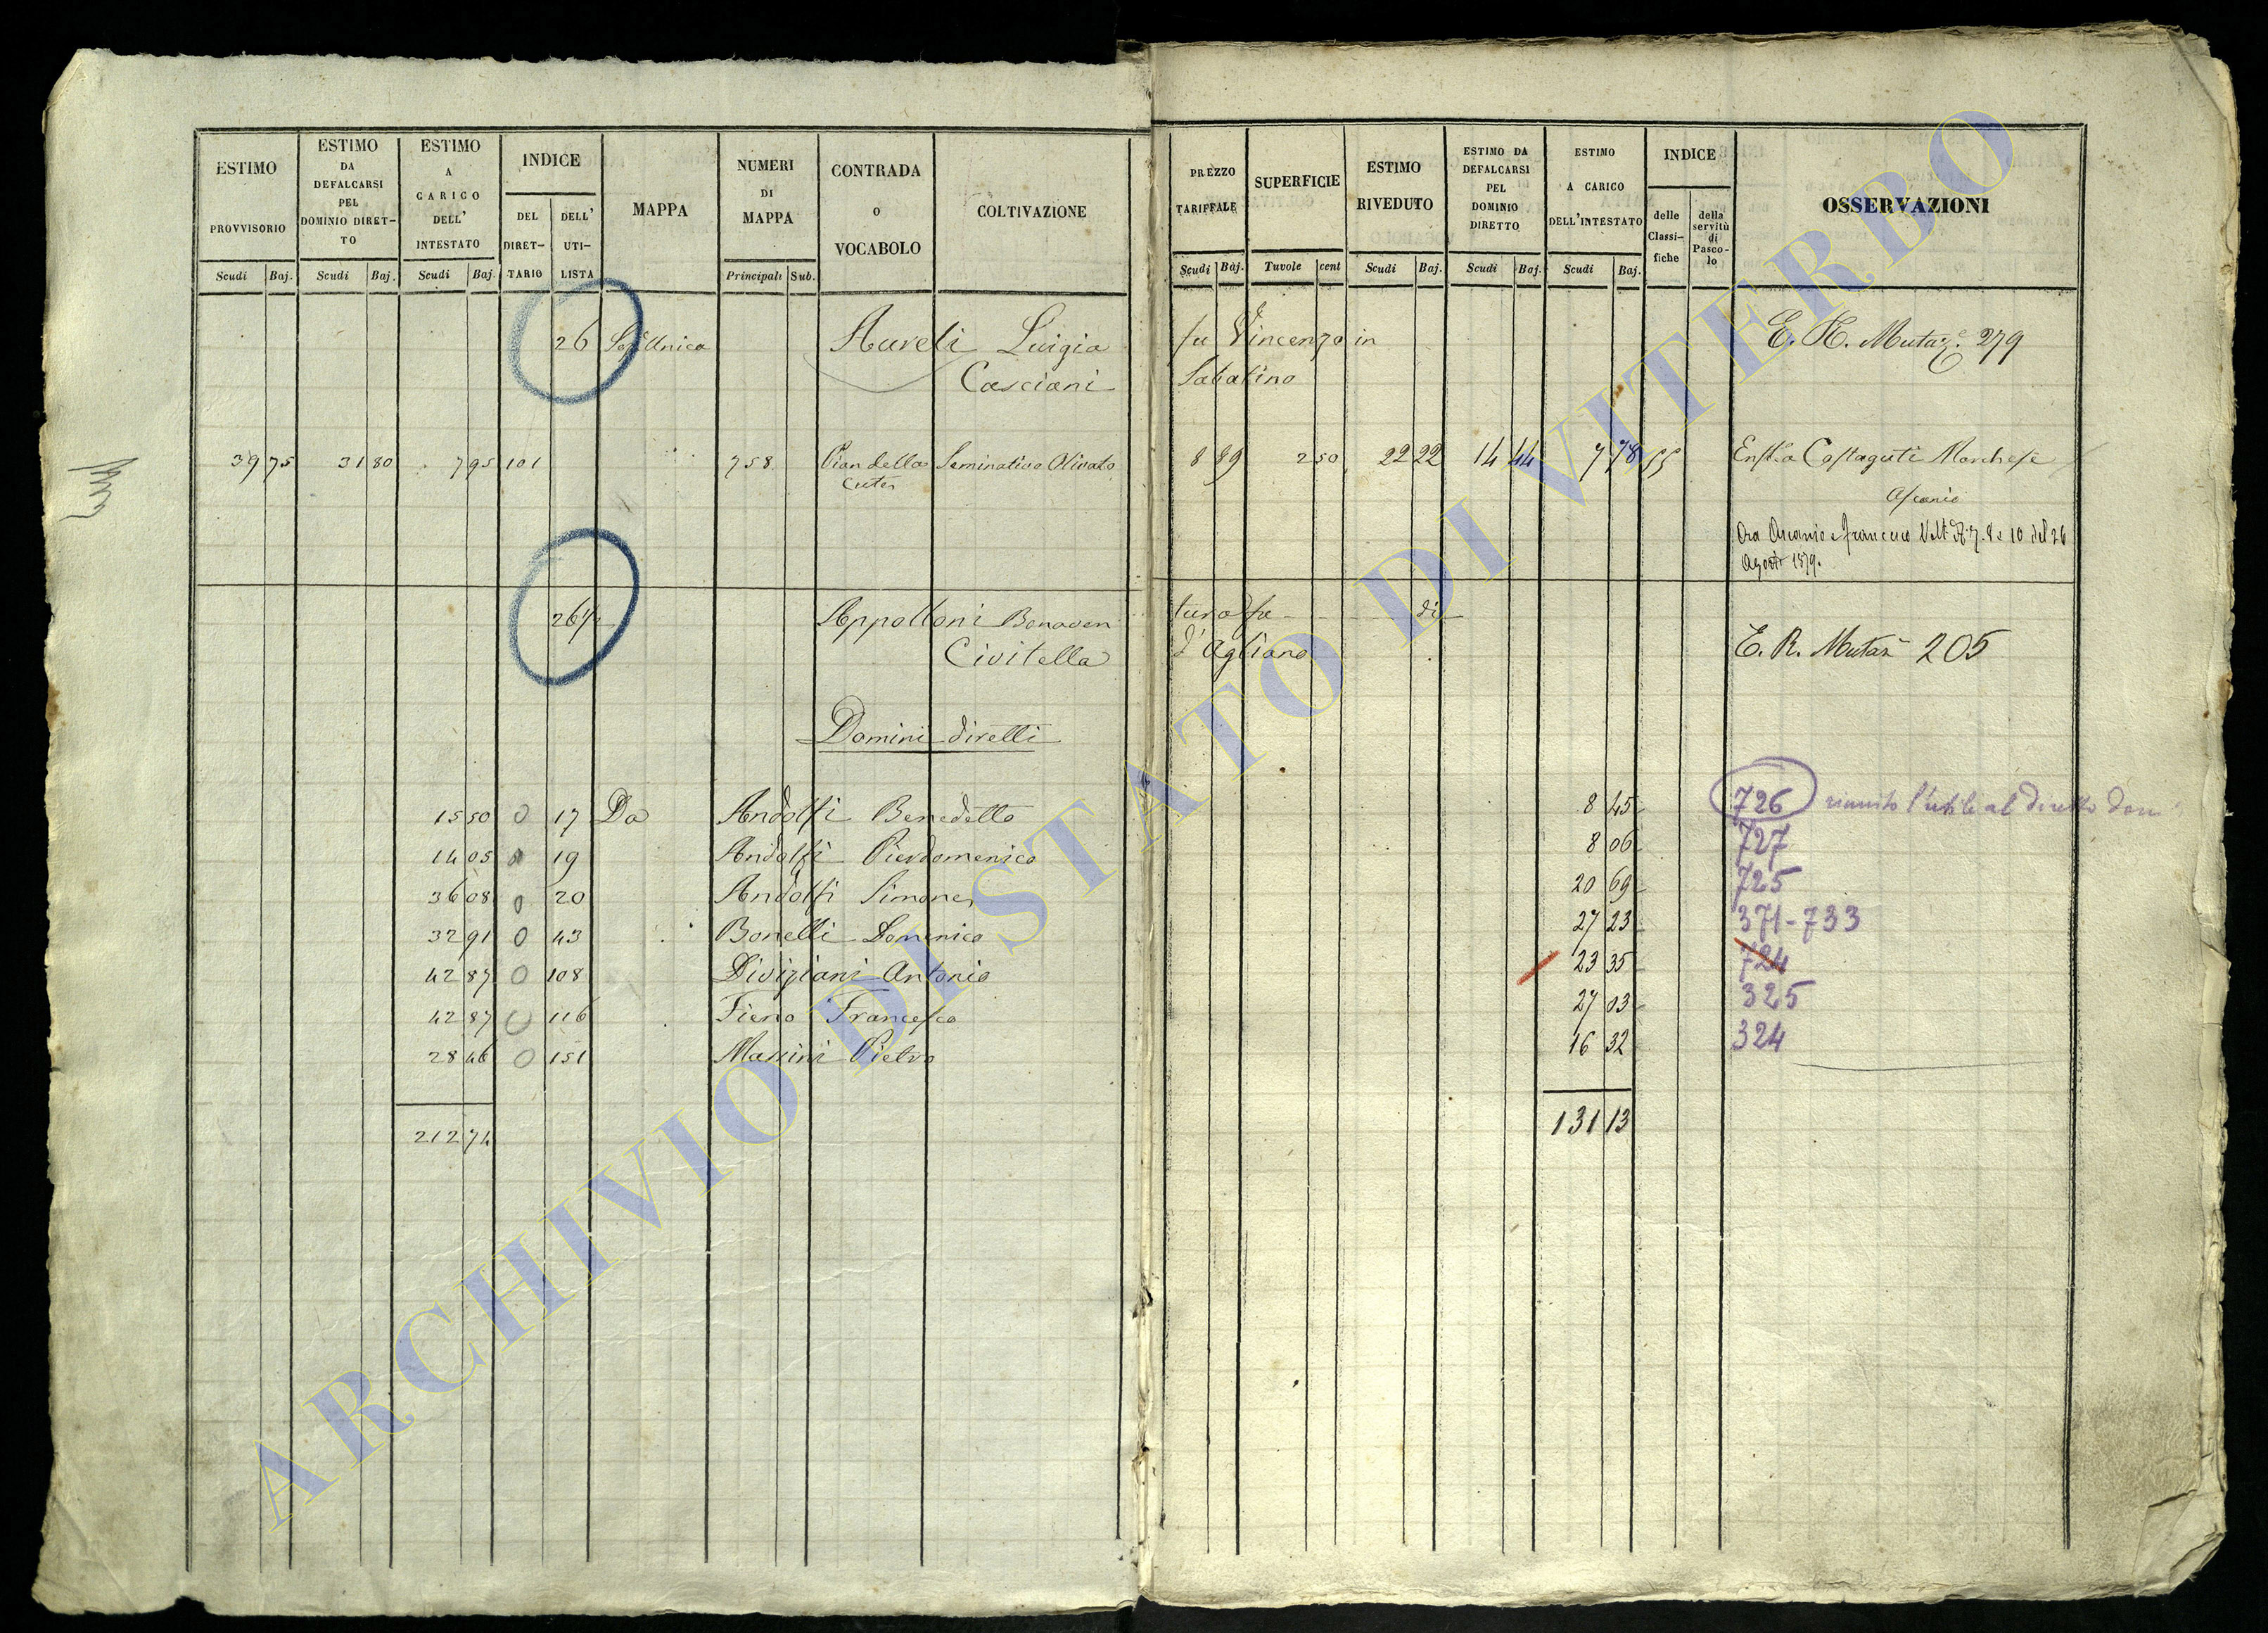 ESTIMO PROVVISORIO
ESTIMO DA DEFALCARSI PEL DOMINIO DIRET-TO
ESTIMO A CARICO DELL' INTESTATO
INDICE
DEL DIRET-TARIO
DELL' UTI-LISTA
MAPPA
NUMERI DI MAPPA
CONTRADA O VOCABOLO
COLTIVAZIONE
Scudi Baj. Scudi Baj. Scudi Baj. Principali Sub.
PREZZO TARIFFALE
SUPERFICIE
ESTIMO RIVEDUTO
ESTIMO DA DEFALCARSI PEL DOMINIO DIRETTO
ESTIMO A CARICO DELL'INTESTATO
INDICE
delle Classi-fiche
della servitù di Pasco-lo
OSSERVAZIONI
Scudi Baj. Tavole cent Scudi Baj. Scudi Baj. Scudi Baj.
26 Unica Aureli Luigia fu Vincenzo in E. R. Mutaz.e 279
Casciani Sabatino
39 75 31 80 7 95 101 758 Pian della Seminativo Olivato 8 89 2 50 22 22 14 44 7 78 55 Enft.a Costaguti Marchese
Ascanio
Ora Ascanio e Francesco Volt. di 7. 8 e 10 del 26
Agosto 1879.
26 1/2 Appolloni Bonaven tura fu di
Civitella d'Agliano E. R. Mutaz 205
Domini diretti
15 50 0 17 Da Andolfi Benedetto 8 45 726 riunito l'utile al diretto dom
14 05 0 19 Andolfi Pierdomenico 8 06 727
36 08 0 20 Andolfi Simone 20 69 725
32 91 0 43 Bonelli Domenico 27 23 371-733
42 87 0 108 Diviziani Antonio 23 35 724
42 87 0 116 Fieno Francesco 27 03 325
28 46 0 151 Massini Pietro 16 32 324
212 74 131 13
ARCHIVIO DI STATO DI VITERBO